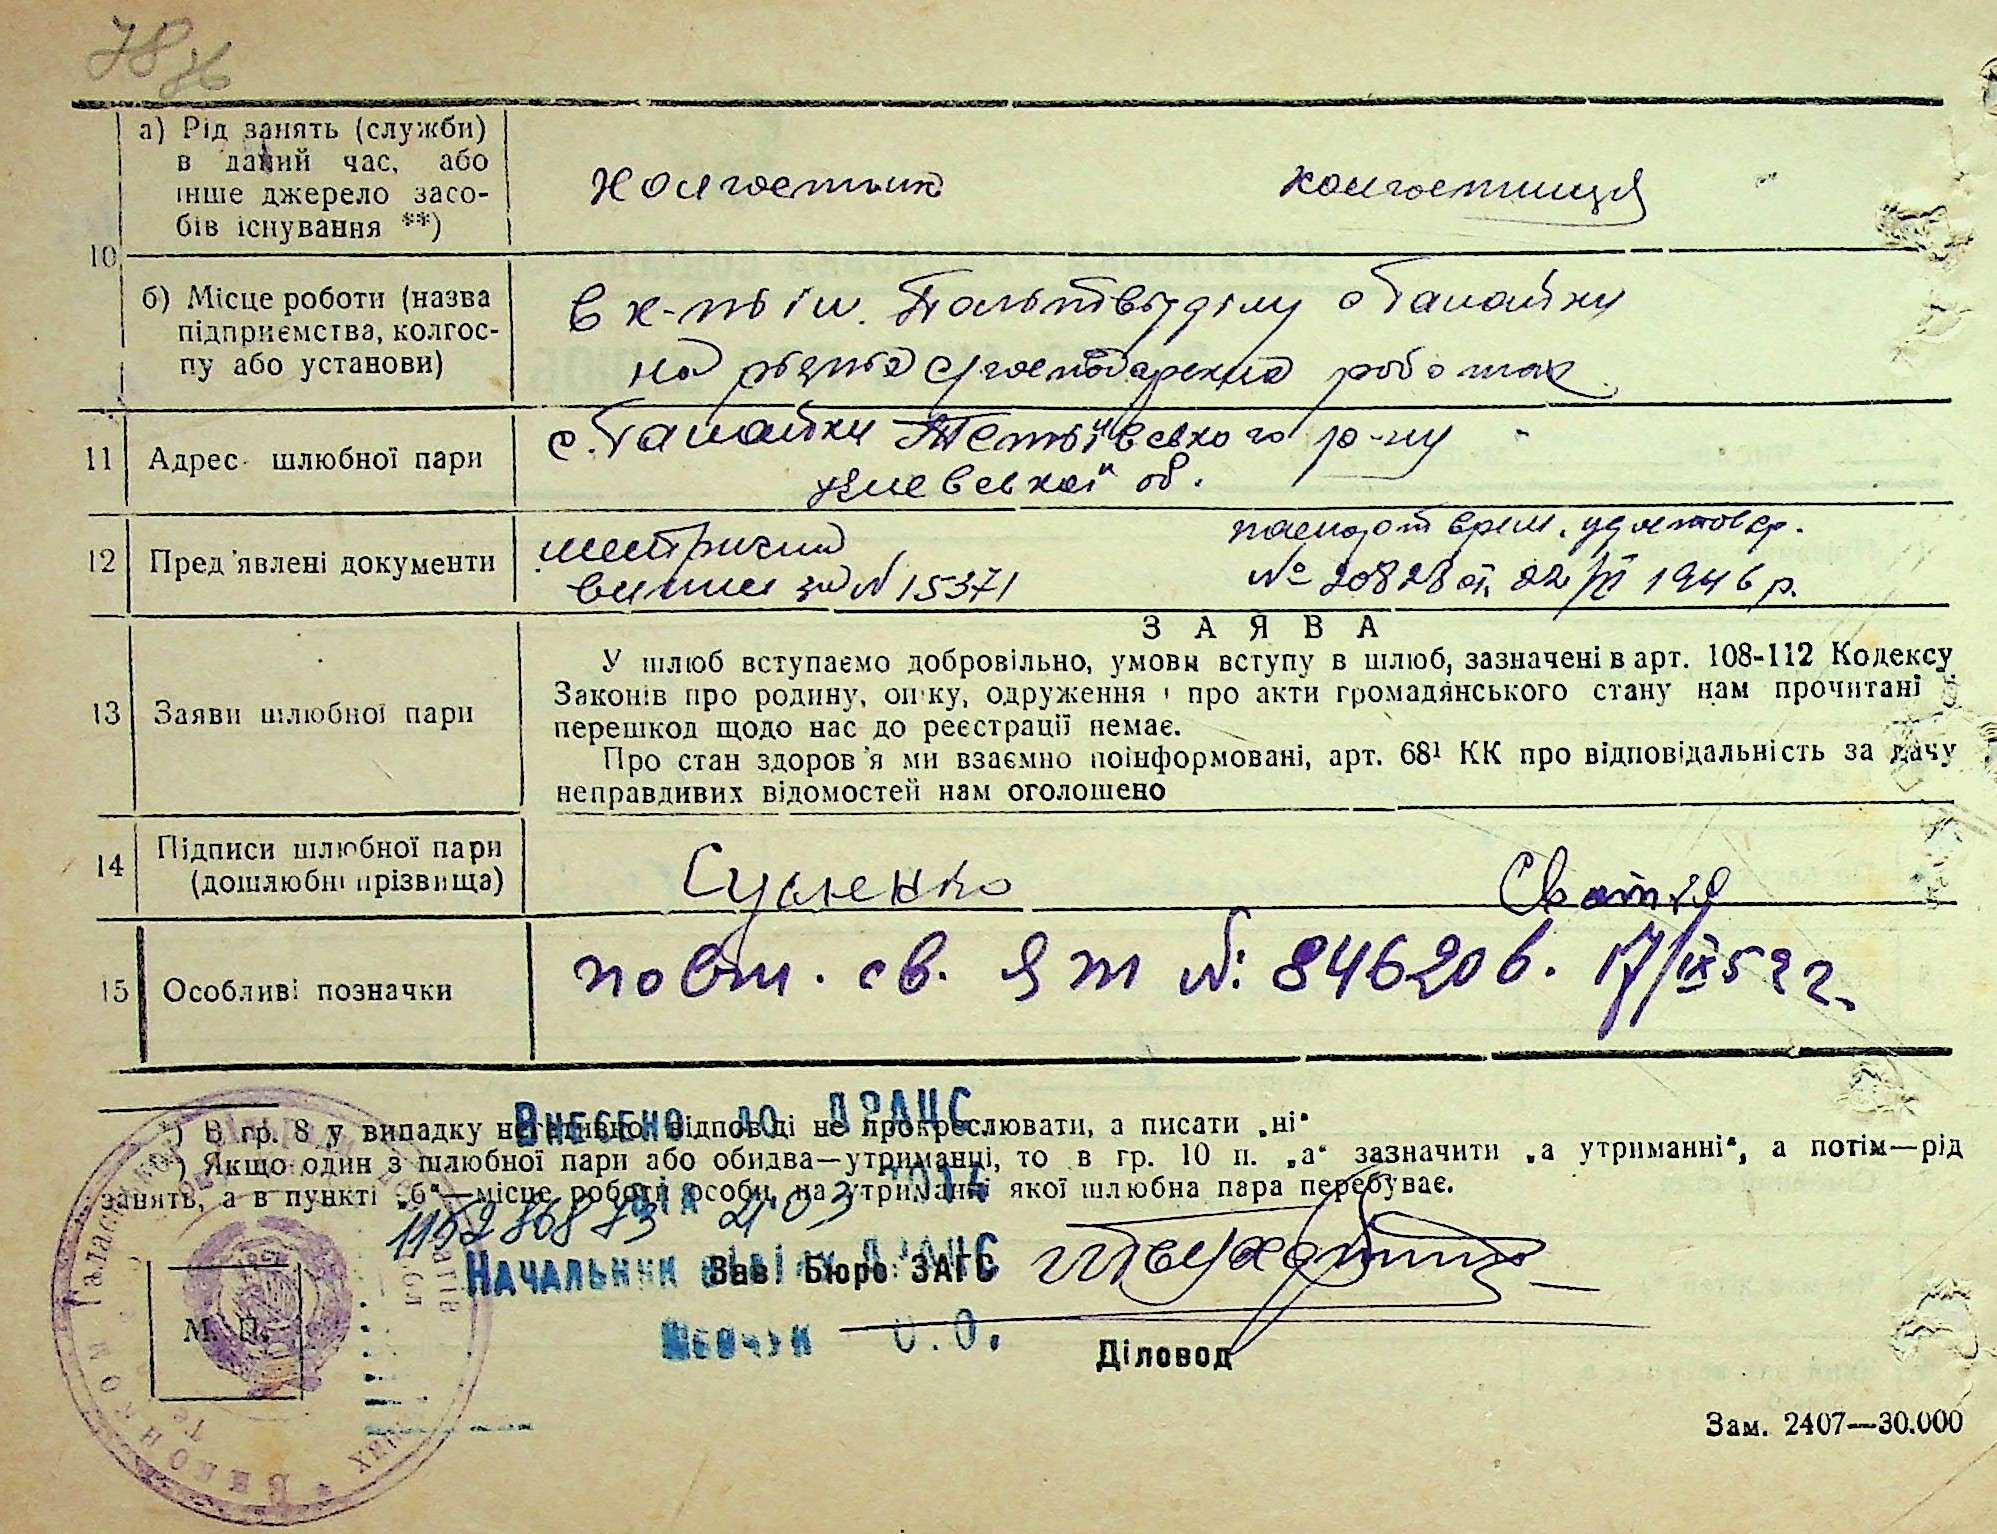 78
10
а) Рід занять (служби)
в даний час, або
інше джерело засо-
бів існування **)
колгоспник
колгоспниця
б) Місце роботи (назва
підприємства, колгос-
пу або установи)
в к-пі ім. Політвідділу с Галайки
на різних с/господарських роботах
11
Адрес шлюбної пари
с. Галайки Тетіївського р-ну
Київської об.
12
Пред'явлені документи
метричний
випис за № 15371
паспорт врем. удостовер.
№ 20828 от 22/VI 1946 р.
13
Заяви шлюбної пари
ЗАЯВА
У шлюб вступаємо добровільно, умови вступу в шлюб, зазначені в арт. 108-112 Кодексу
Законів про родину, опіку, одруження і про акти громадянського стану нам прочитані і
перешкод щодо нас до реєстрації немає.
Про стан здоров'я ми взаємно поінформовані, арт. 68¹ КК про відповідальність за дачу
неправдивих відомостей нам оголошено
14
Підписи шлюбної пари
(дошлюбні прізвища)
15
Особливі позначки
повт. св. ЯТ №: 846206. 17/IX 52 г.
*) В гр. 8 у випадку негативної відповіді не прокреслювати, а писати „ні“
**) Якщо один з шлюбної пари або обидва—утриманці, то в гр. 10 п. „а“ зазначити „а утриманні“, а потім—рід
занять, а в пункті „б“—місце роботи особи, на утриманні якої шлюбна пара перебуває.
Внесено до ДРАЦС
2014
Зав. Бюро ЗАГС
Начальник відділу ДРАЦС
Шевчук О.О.
М. П.
Діловод
Зам. 2407—30.000